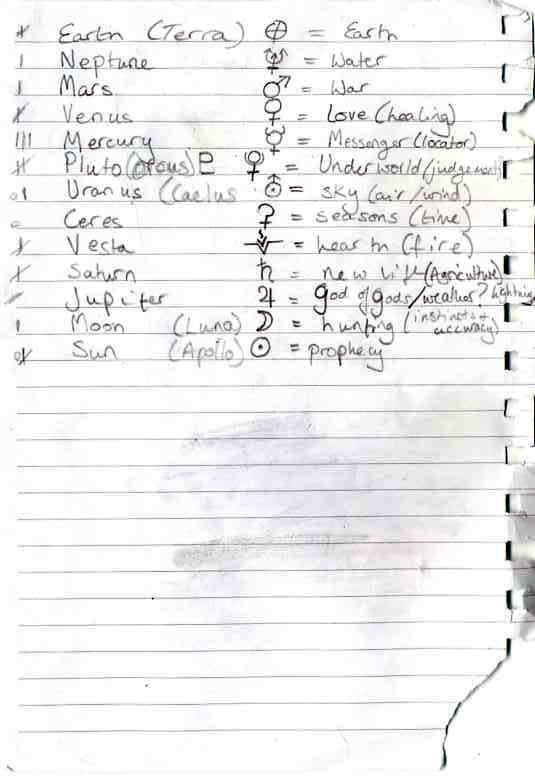 Earth (Terra) ⊕ = Earth
Neptune ♆ = Water
Mars ♂ = War
Venus ♀ = Love (healing)
Mercury ☿ = Messenger (locator)
Pluto (Orcus) ♇ = Underworld (judgement)
Uranus (Caelus ⛢ = Sky (air/wind)
Ceres ⚳ = seasons (time)
Vesta = hearth (fire)
Saturn ♄ = new life (Agriculture)
Jupiter ♃ = god of gods/weather? lightning
Moon (Luna) ☽ = hunting (instincts + accuracy)
Sun (Apollo) ☉ = prophecy